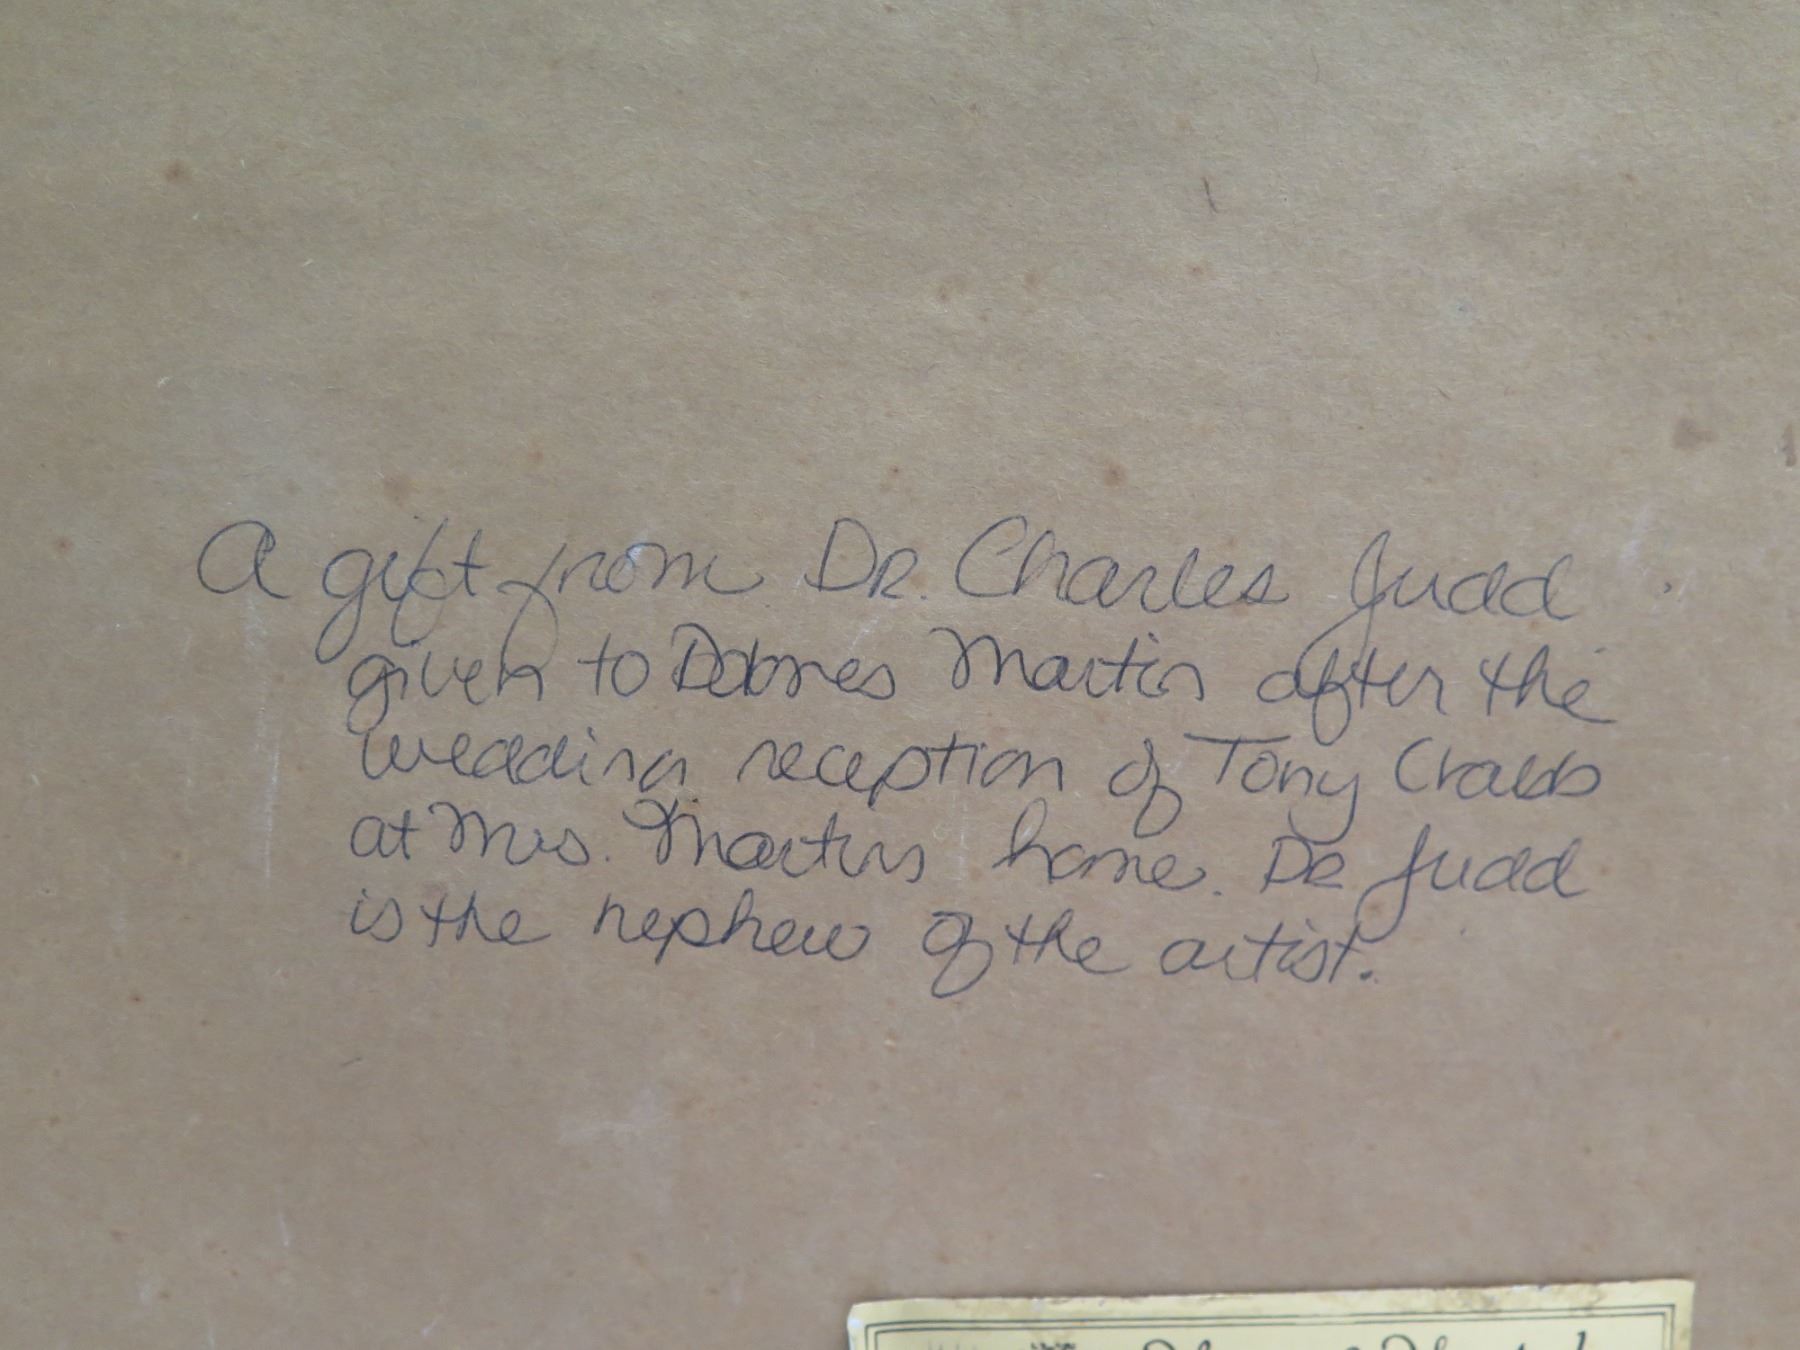 A gift from DR. Charles Judd
given to Dolores Martin after the
wedding reception of Tony Crabb
at Mrs. Martins home. DR Judd
is the nephew of the artist.